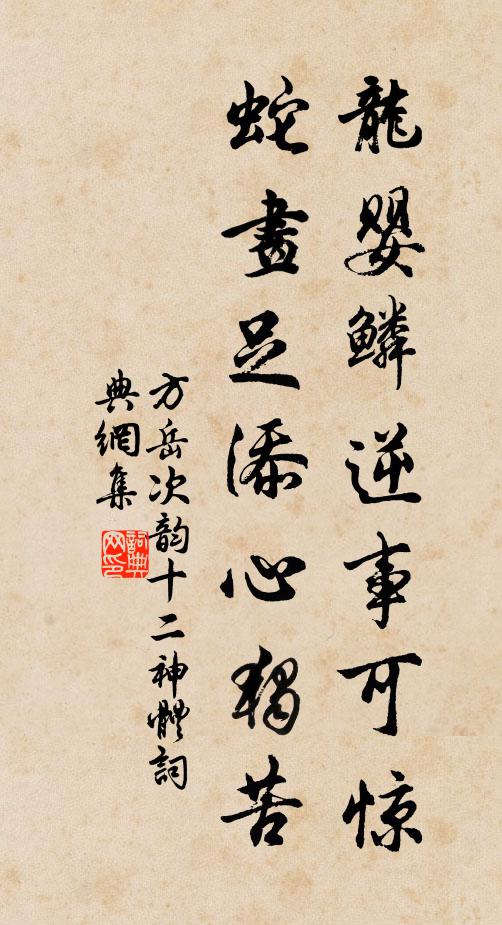 龍嬰鱗逆事可惊
蛇畫足添心獨苦
方岳次韵十二神體詞
典網集
詞典网印